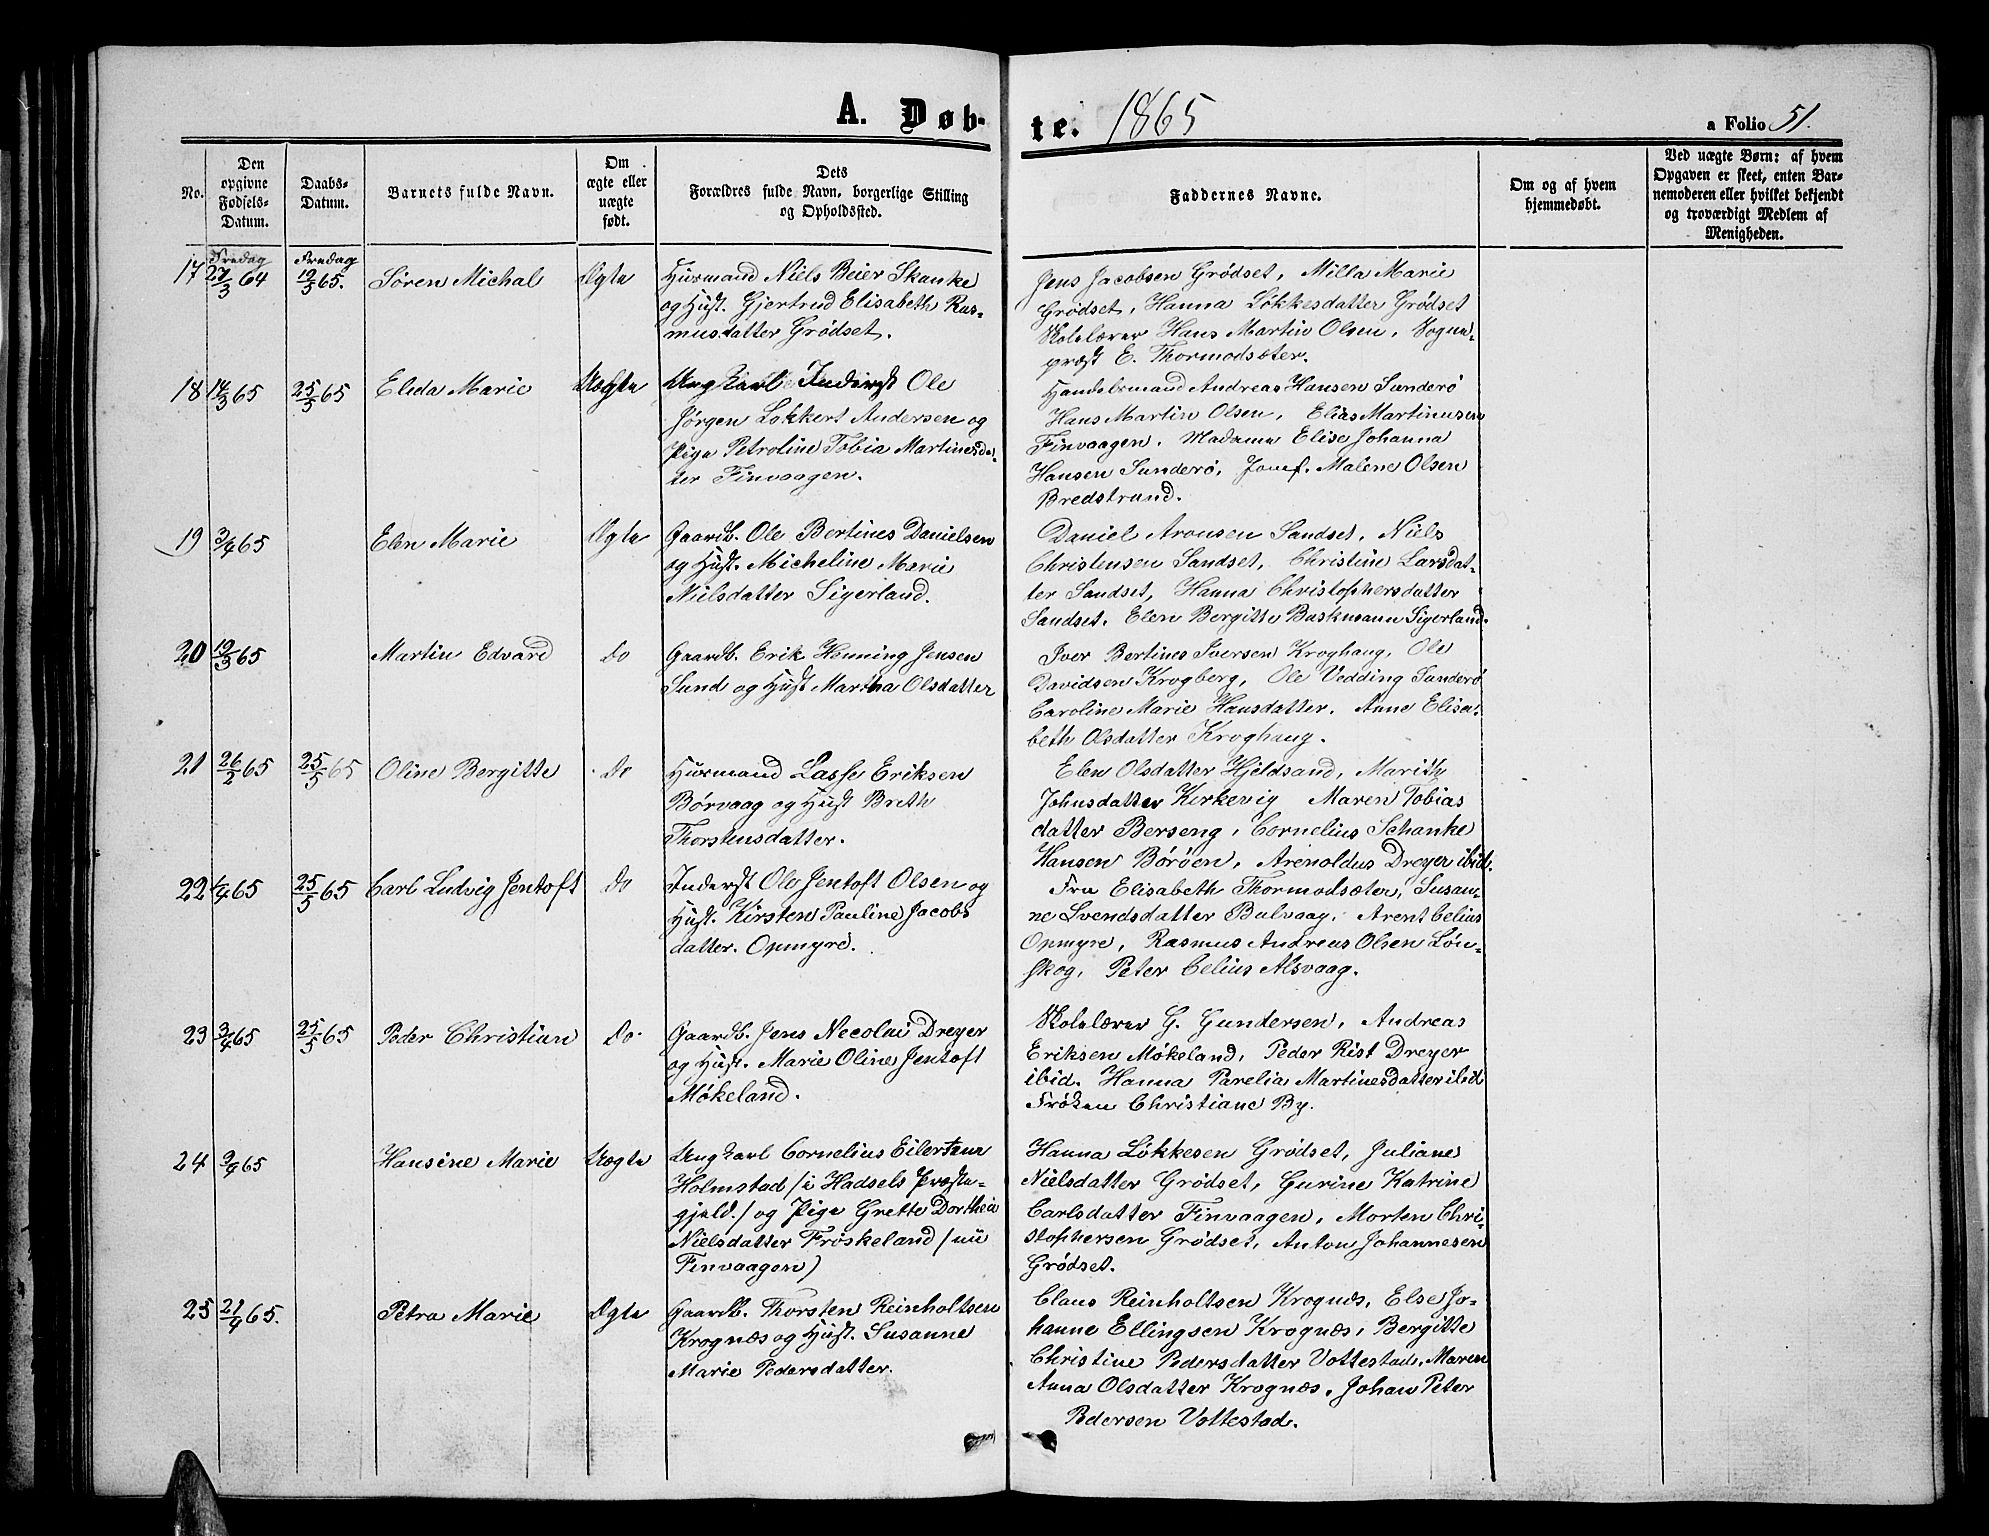 A. Døb-
te. 1865
a Folio 51.
No.
Den
opgivne
Fødsels-
Datum.
Daabs-
Datum.
Barnets fulde Navn.
Om
ægte eller
uægte
født.
Dets
Forældres fulde Navn, borgerlige Stilling
og Opholdssted.
Faddernes Navne.
Om og af hvem
hjemmedøbt.
Ved uægte Børn: af hvem
Opgaven er skeet, enten Bar-
nemoderen eller hvilket bekjendt
og troværdigt Medlem af
Menigheden.
Fredag Fredag
17 27/3 64 19/5 65. Søren Michal Ægte
Husmand Niels Beier Skanke
og Hust. Gjertrud Elisabeth Ras-
musdatter Grødset.
Jens Jacobsen Grødset, Milla Marie
Grødset, Hanna Løkkesdatter Grødset
Skolelærer Hans Martin Olsen, Sogne-
præst E. Thormodsæter.
18 14/3 65 25/5 65 Elida Marie Uægte
Ungkarl Inderst Ole
Jørgen Lokkert Andersen og
Pige Petroline Tobia Martinesdat-
ter Finvaagen.
Handelsmand Andreas Hansen Sunderø
Hans Martin Olsen, Elias Martinussen
Finvaagen. Madame Elise Johanna
Hansen Sunderø, Jomf. Malene Olsen
Bredstrand.
19 3/4 65 Elen Marie Ægte
Gaardb. Ole Bertines Danielsen
og Hust. Micheline Marie
Nielsdatter Sigerland.
Daniel Aronsen Sandset, Niels
Christensen Sandset, Christine Larsdat-
ter Sandset, Hanna Christophersdatter
Sandset. Elen Bergitte Buskmann Sigerland.
20 19/3 65 Martin Edvard Do
Gaardb. Erik Henning Jensen
Sund og Hust Martha Olsdatter
Iver Bertines Iversen Kroghaug, Ole
Davidsen Krogberg, Ole Vedding Sunderø
Caroline Marie Hansdatter. Anne Elisa-
beth Olsdatter Kroghaug.
21 26/2 65 25/5 65 Oline Bergitte Do
Husmand Lasse Eriksen
Børvaag og Hust Breth
Thorstensdatter.
Elen Olsdatter Hjeldsand, Marith
Johnsdatter Kirkevig Maren Tobias
datter Berseng, Cornelius Schanke
Hansen Børøen, Arenoldus Dreyer ibid.
22 1/4 65 25/5 65 Carl Ludvig Jentoft Do
Inderst Ole Jentoft Olsen og
Hust. Kirsten Pauline Jacobs
datter. Opmyre.
Fru Elisabeth Thormodsæter, Susan-
ne Svendsdatter Bulvaag, Arent Celius
Opmyre, Rasmus Andreas Olsen Løn-
skog, Peter Celius Alsvaag.
23 3/4 65 25/5 65 Peder Christian Do
Gaardb. Jens Necolai Dreyer
og Hust. Marie Oline Jentoft
Møkeland.
Skolelærer G. Gundersen, Andreas
Eriksen Møkeland, Peder Rist Dreyer
ibid. Hanna Parelia Martinesdatter ibid
Frøken Christiane By.
24 9/4 65 Hansine Marie Uægte
Ungkarl Cornelius Eilertsen
Holmstad /i Hadsels Præste-
gjeld./ og Pige Grette Dorthea
Nielsdatter Frøskeland /nu
Finvaagen)
Hanna Løkkesen Grødset, Juliane
Nielsdatter Grødset, Gurine Katrine
Carlsdatter Finvaagen, Morten Chri-
stophersen Grødset, Anton Johannesen
Grødset.
25 21/4 65. Petra Marie Ægte
Gaardb. Thorsten Reinholtsen
Krognæs og Hust. Susanne
Marie Pedersdatter.
Claus Reinholtsen Krognæs, Else Jo-
hanne Ellingsen Krognæs, Bergitte
Christine Pedersdatter Vottestad, Maren
Anna Olsdatter Krognæs, Johan Peter
Pedersen Vottestad.